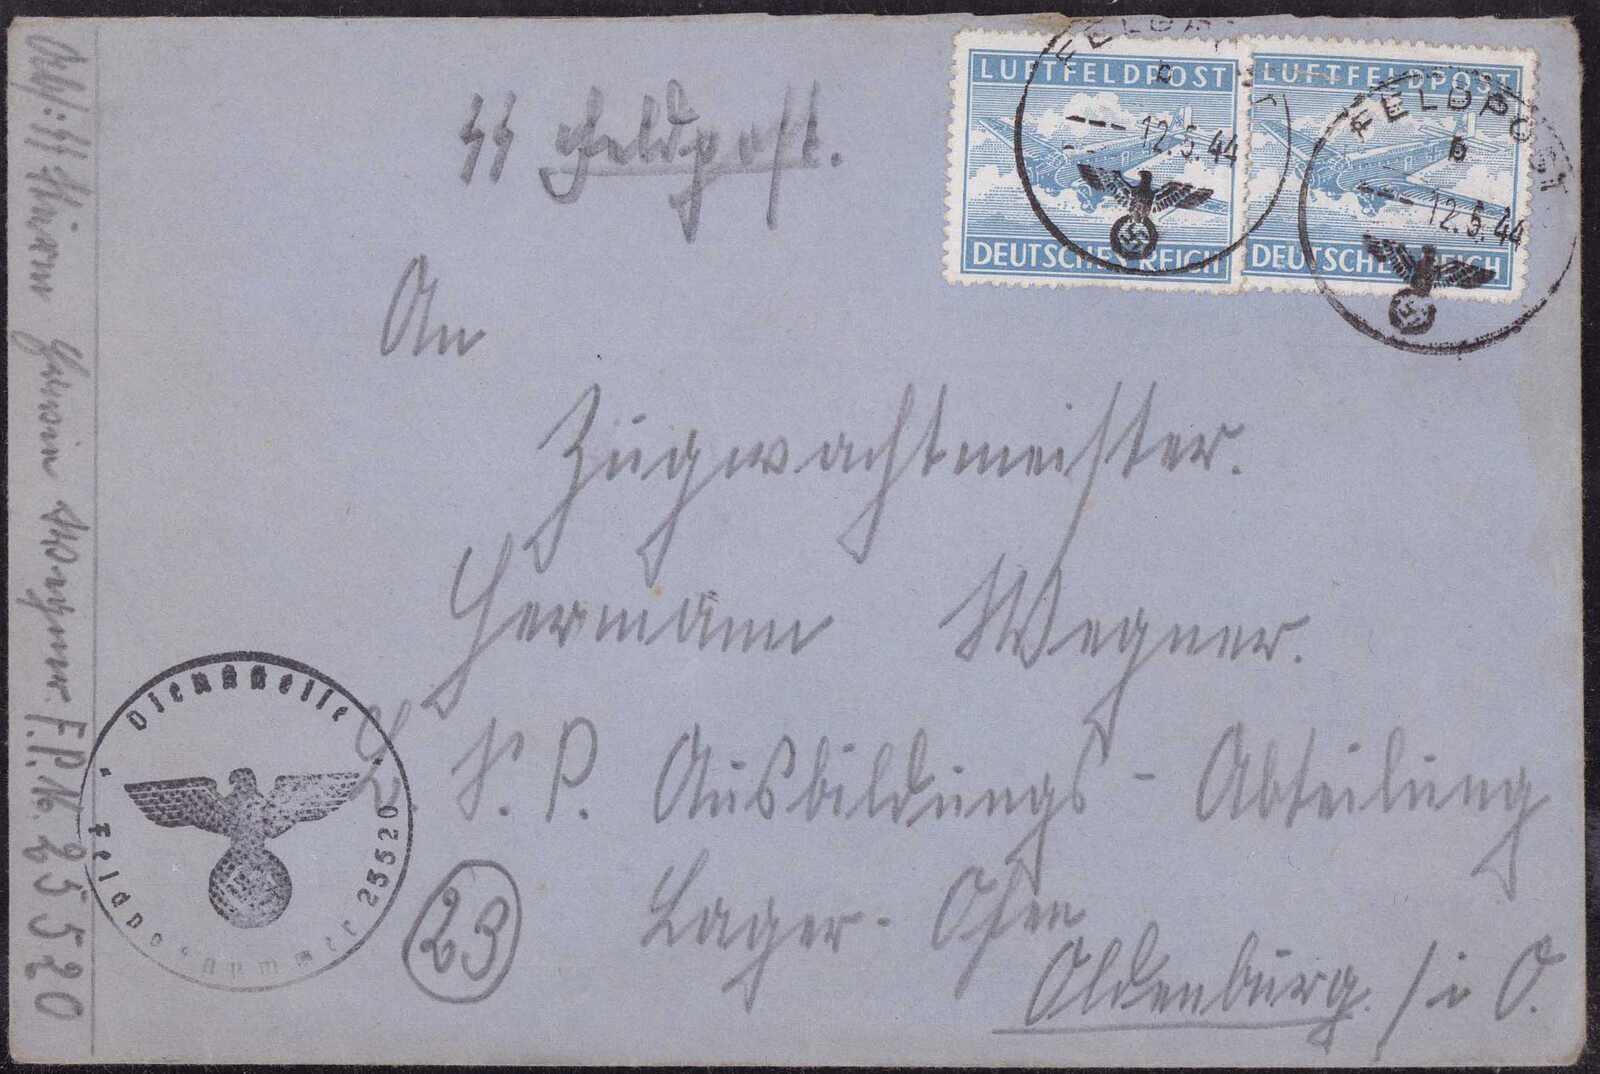 SS Feldpost.
LUFTFELDPOST
DEUTSCHES REICH
LUFTFELDPOST
DEUTSCHES REICH
FELDPOST
b
12.5.44
FELDPOST
b
12.5.44
An
Zugwachtmeister.
Hermann Wegner.
L. S. P. Ausbildungs-Abteilung
Lager-Ofen
Oldenburg. / i O.
23
Dienststelle
Feldpostnummer 25520
Abs: SS F.P.N. 25520